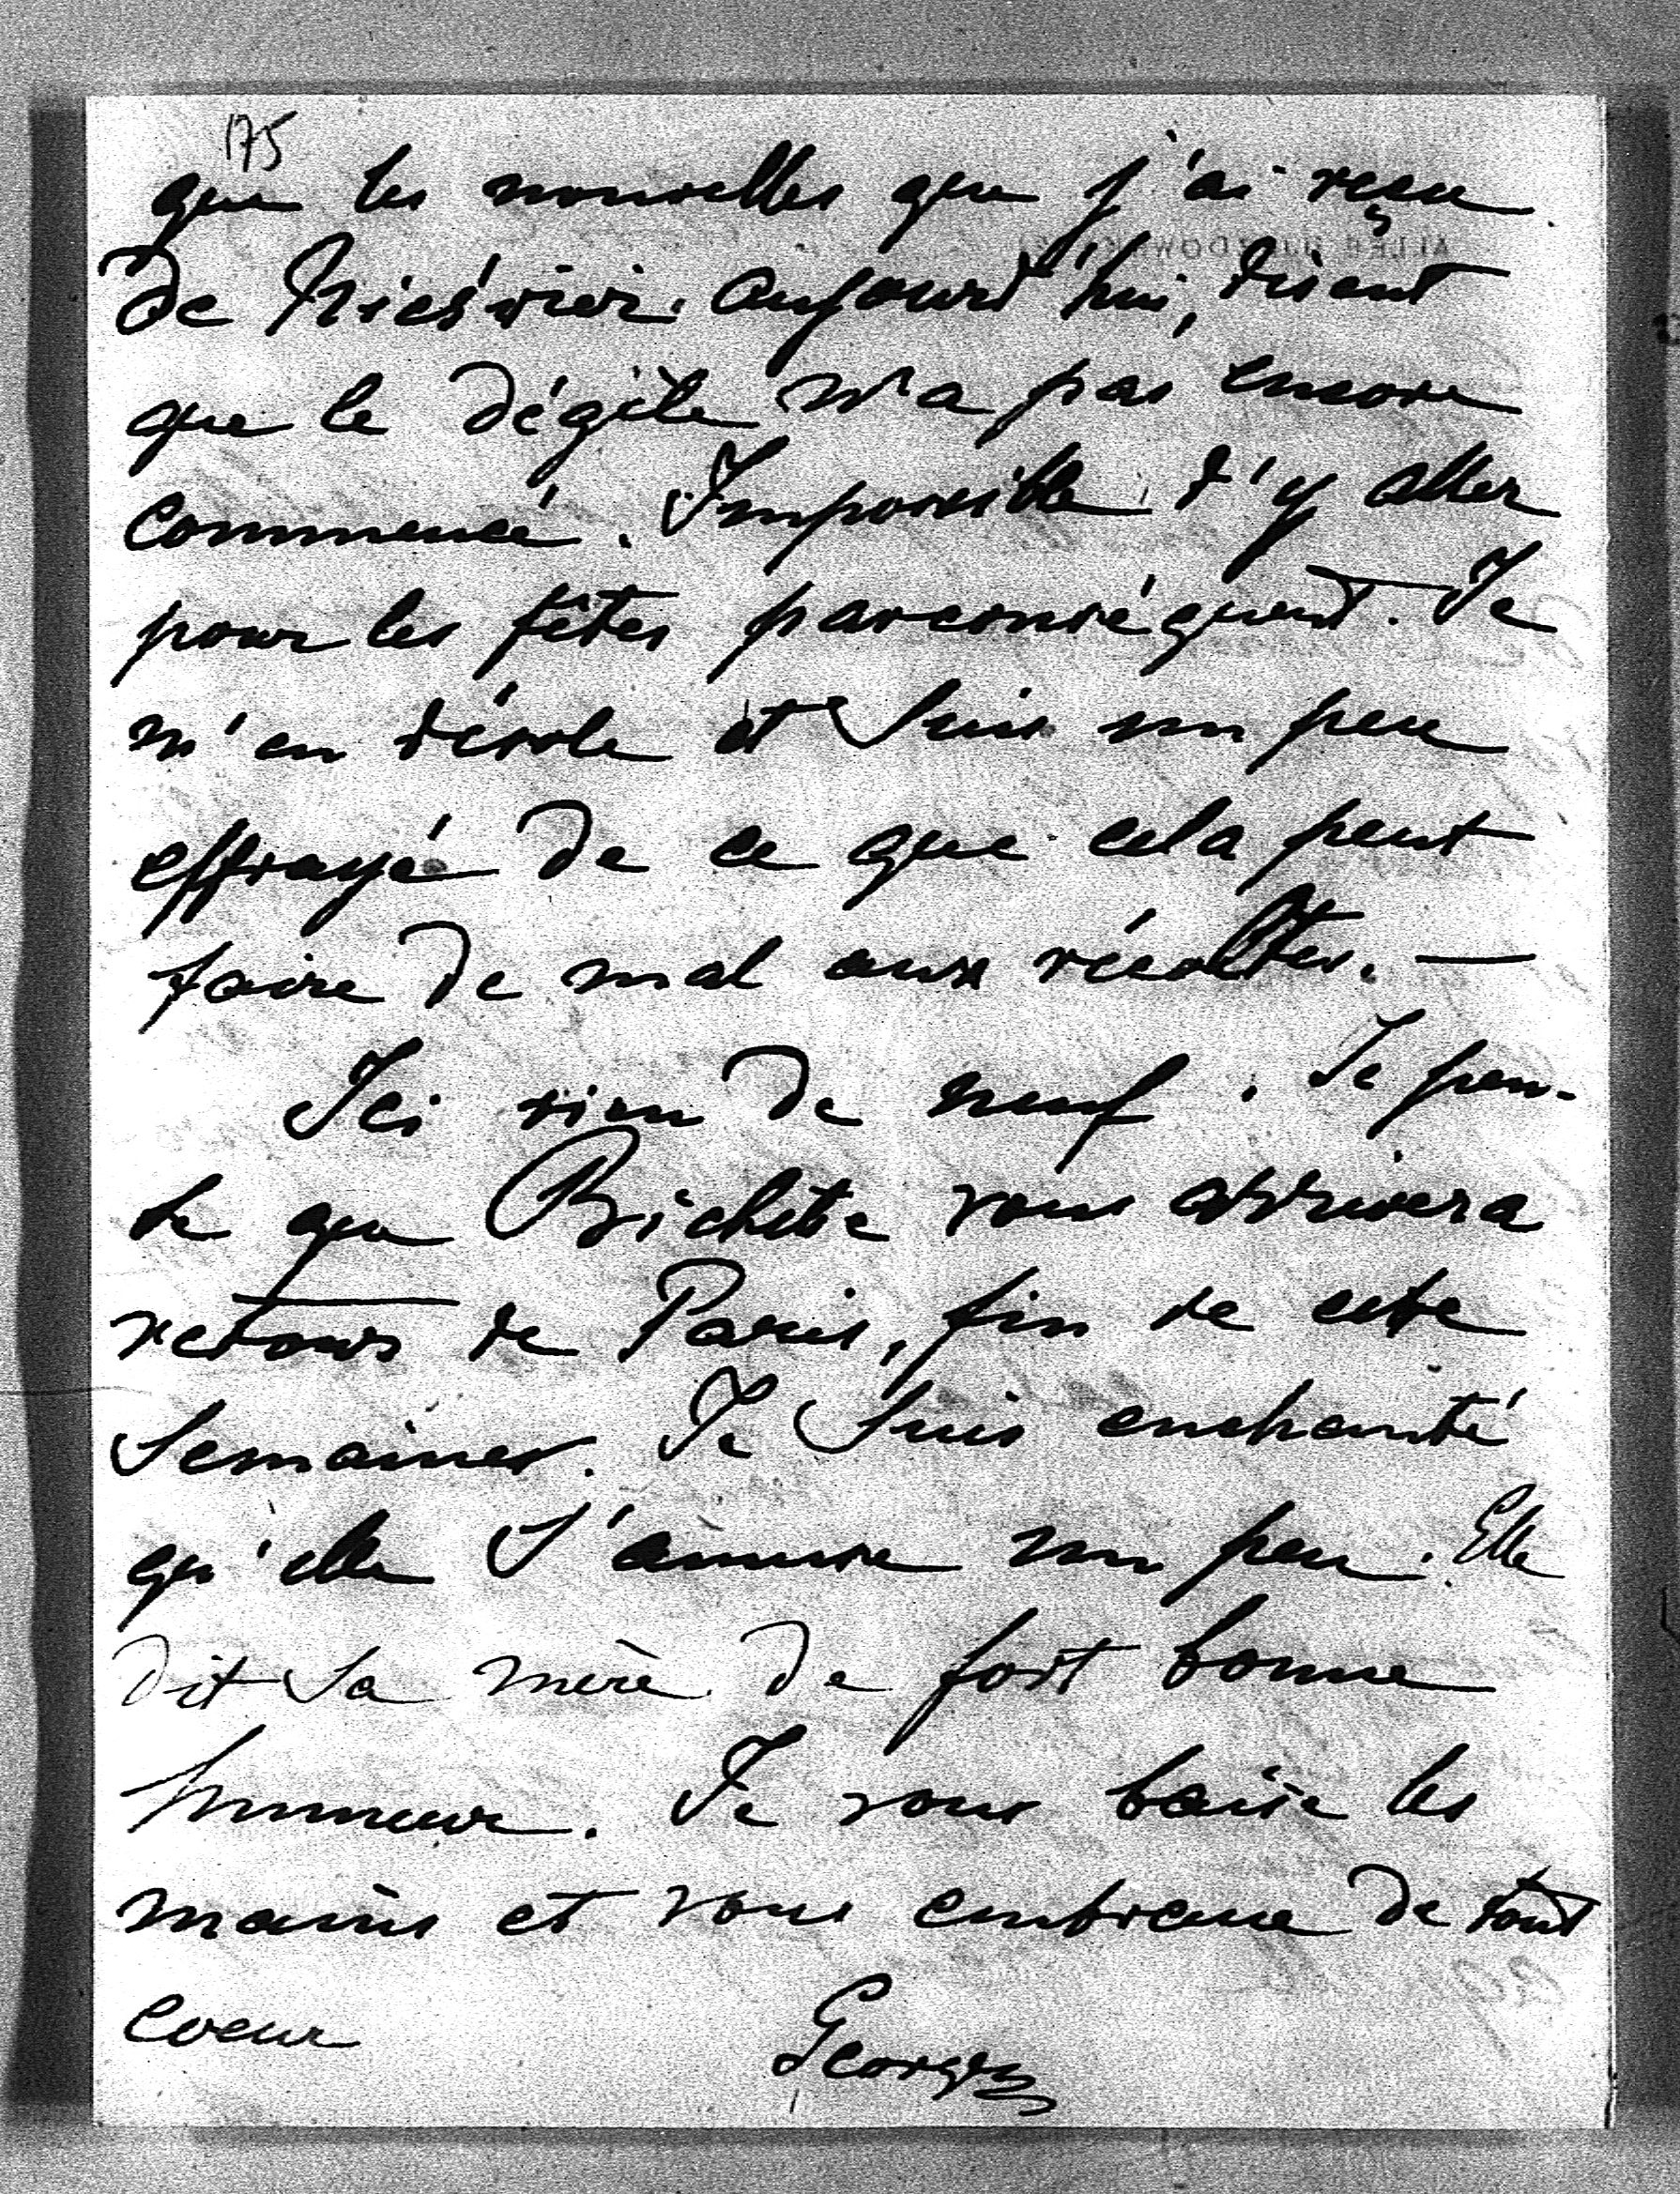 175
que les nouvelles que j'ai reçu
de Nieśwież aujourd'hui, disent
que le dégèle n'a pas encore
commencé. Impossible d'y aller
pour les fêtes parconséquent. Je
m'en désole et suis un peu
effrayé de ce que cela peut
faire de mal aux récoltes. —
Ici rien de neuf. Je pen-
se que Bichette vous arrivera
retour de Paris, fin de cette
semaine. Je suis enchanté
qu'elle s'amuse un peu. Elle
dit sa mère de fort bonne
humeur. Je vous baise les
mains et vous embrasse de tout
coeur
Georges